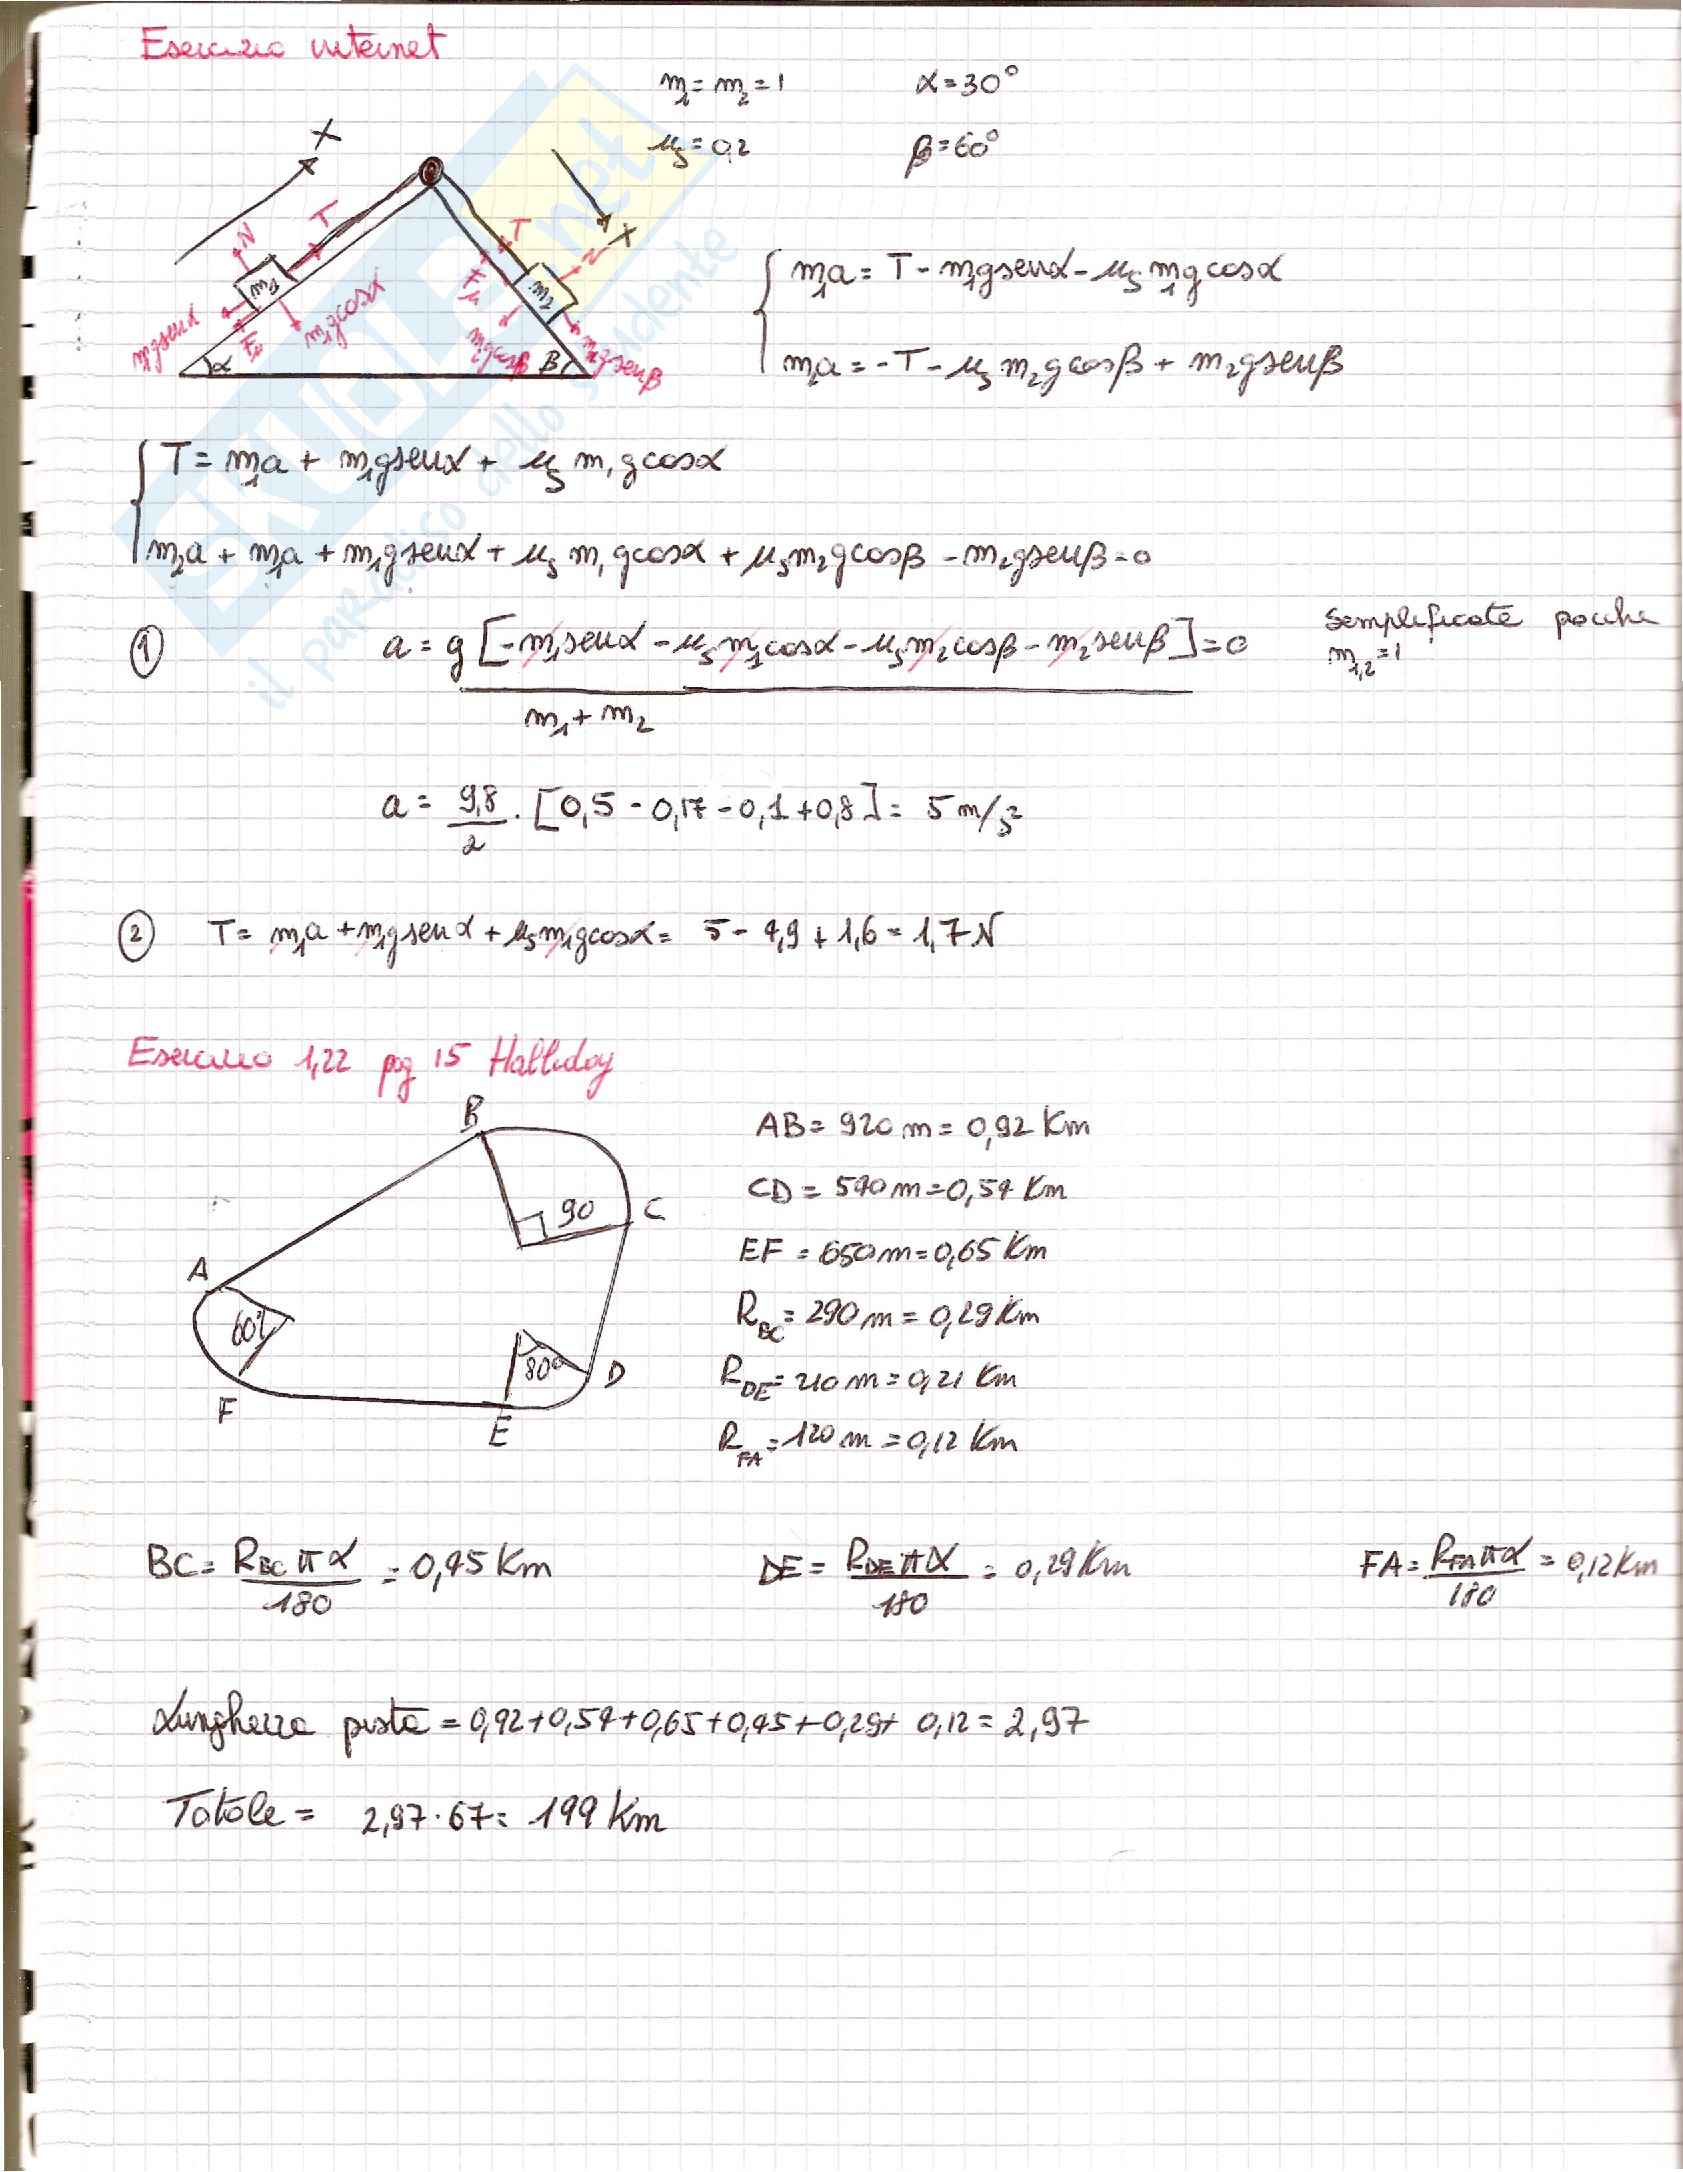 Esercizio internet
m₁ = m₂ = 1 α = 30°
μs = 0,2 β = 60°
X
T
N
m₁
m₁gsenα
Fμ
m₁gcosα
α
X
T
N
Fμ
m₂
m₂gcosβ
β
m₂gsenβ
m₁a = T - m₁gsenα - μs m₁gcosα
m₂a = -T - μs m₂gcosβ + m₂gsenβ
T = m₁a + m₁gsenα + μs m₁gcosα
m₂a + m₁a + m₁gsenα + μs m₁gcosα + μs m₂gcosβ - m₂gsenβ = 0
① a = g [-m₁senα - μs m₁cosα - μs m₂cosβ - m₂senβ] = 0 semplificate poiche
m₁,₂ = 1
m₁ + m₂
a = 9,8/2 · [0,5 - 0,17 - 0,1 + 0,8] = 5 m/s²
② T = m₁a + m₁gsenα + μs m₁gcosα = 5 - 4,9 + 1,6 = 1,7 N
Esercizio 1,22 pag 15 Halliday
B
90
C
A
60°
80°
D
F
E
AB = 920 m = 0,92 Km
CD = 540 m = 0,54 Km
EF = 650 m = 0,65 Km
R_BC = 290 m = 0,29 Km
R_DE = 210 m = 0,21 Km
R_FA = 120 m = 0,12 Km
BC = R_BC π α / 180 = 0,45 Km DE = R_DE π α / 180 = 0,29 Km FA = R_FA π α / 180 = 0,12 Km
Lunghezza pista = 0,92 + 0,54 + 0,65 + 0,45 + 0,29 + 0,12 = 2,97
Totale = 2,97 · 67 = 199 Km
SKUOLA.net
il paradiso dello studente